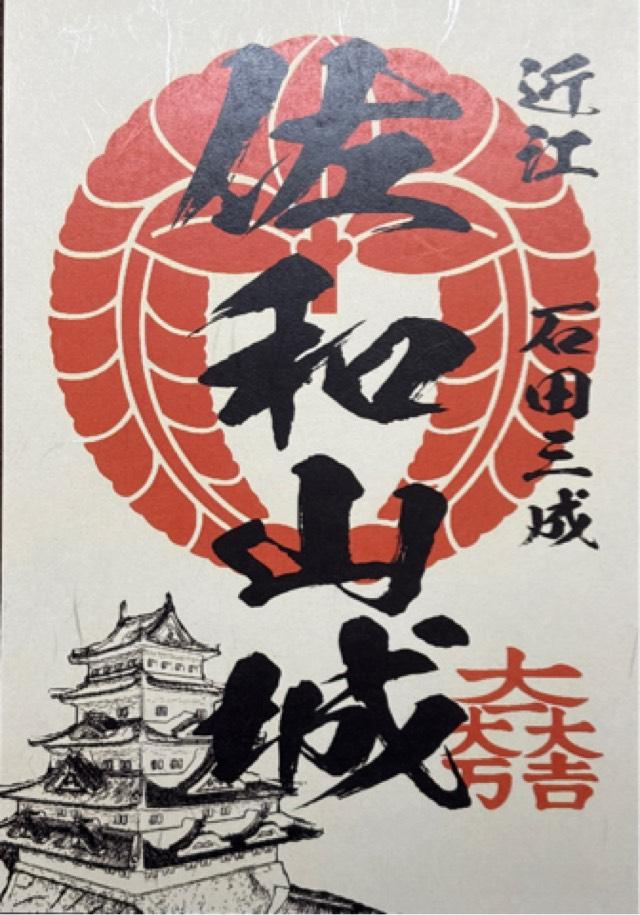 近江
石田三成
佐和山城
大一大万大吉